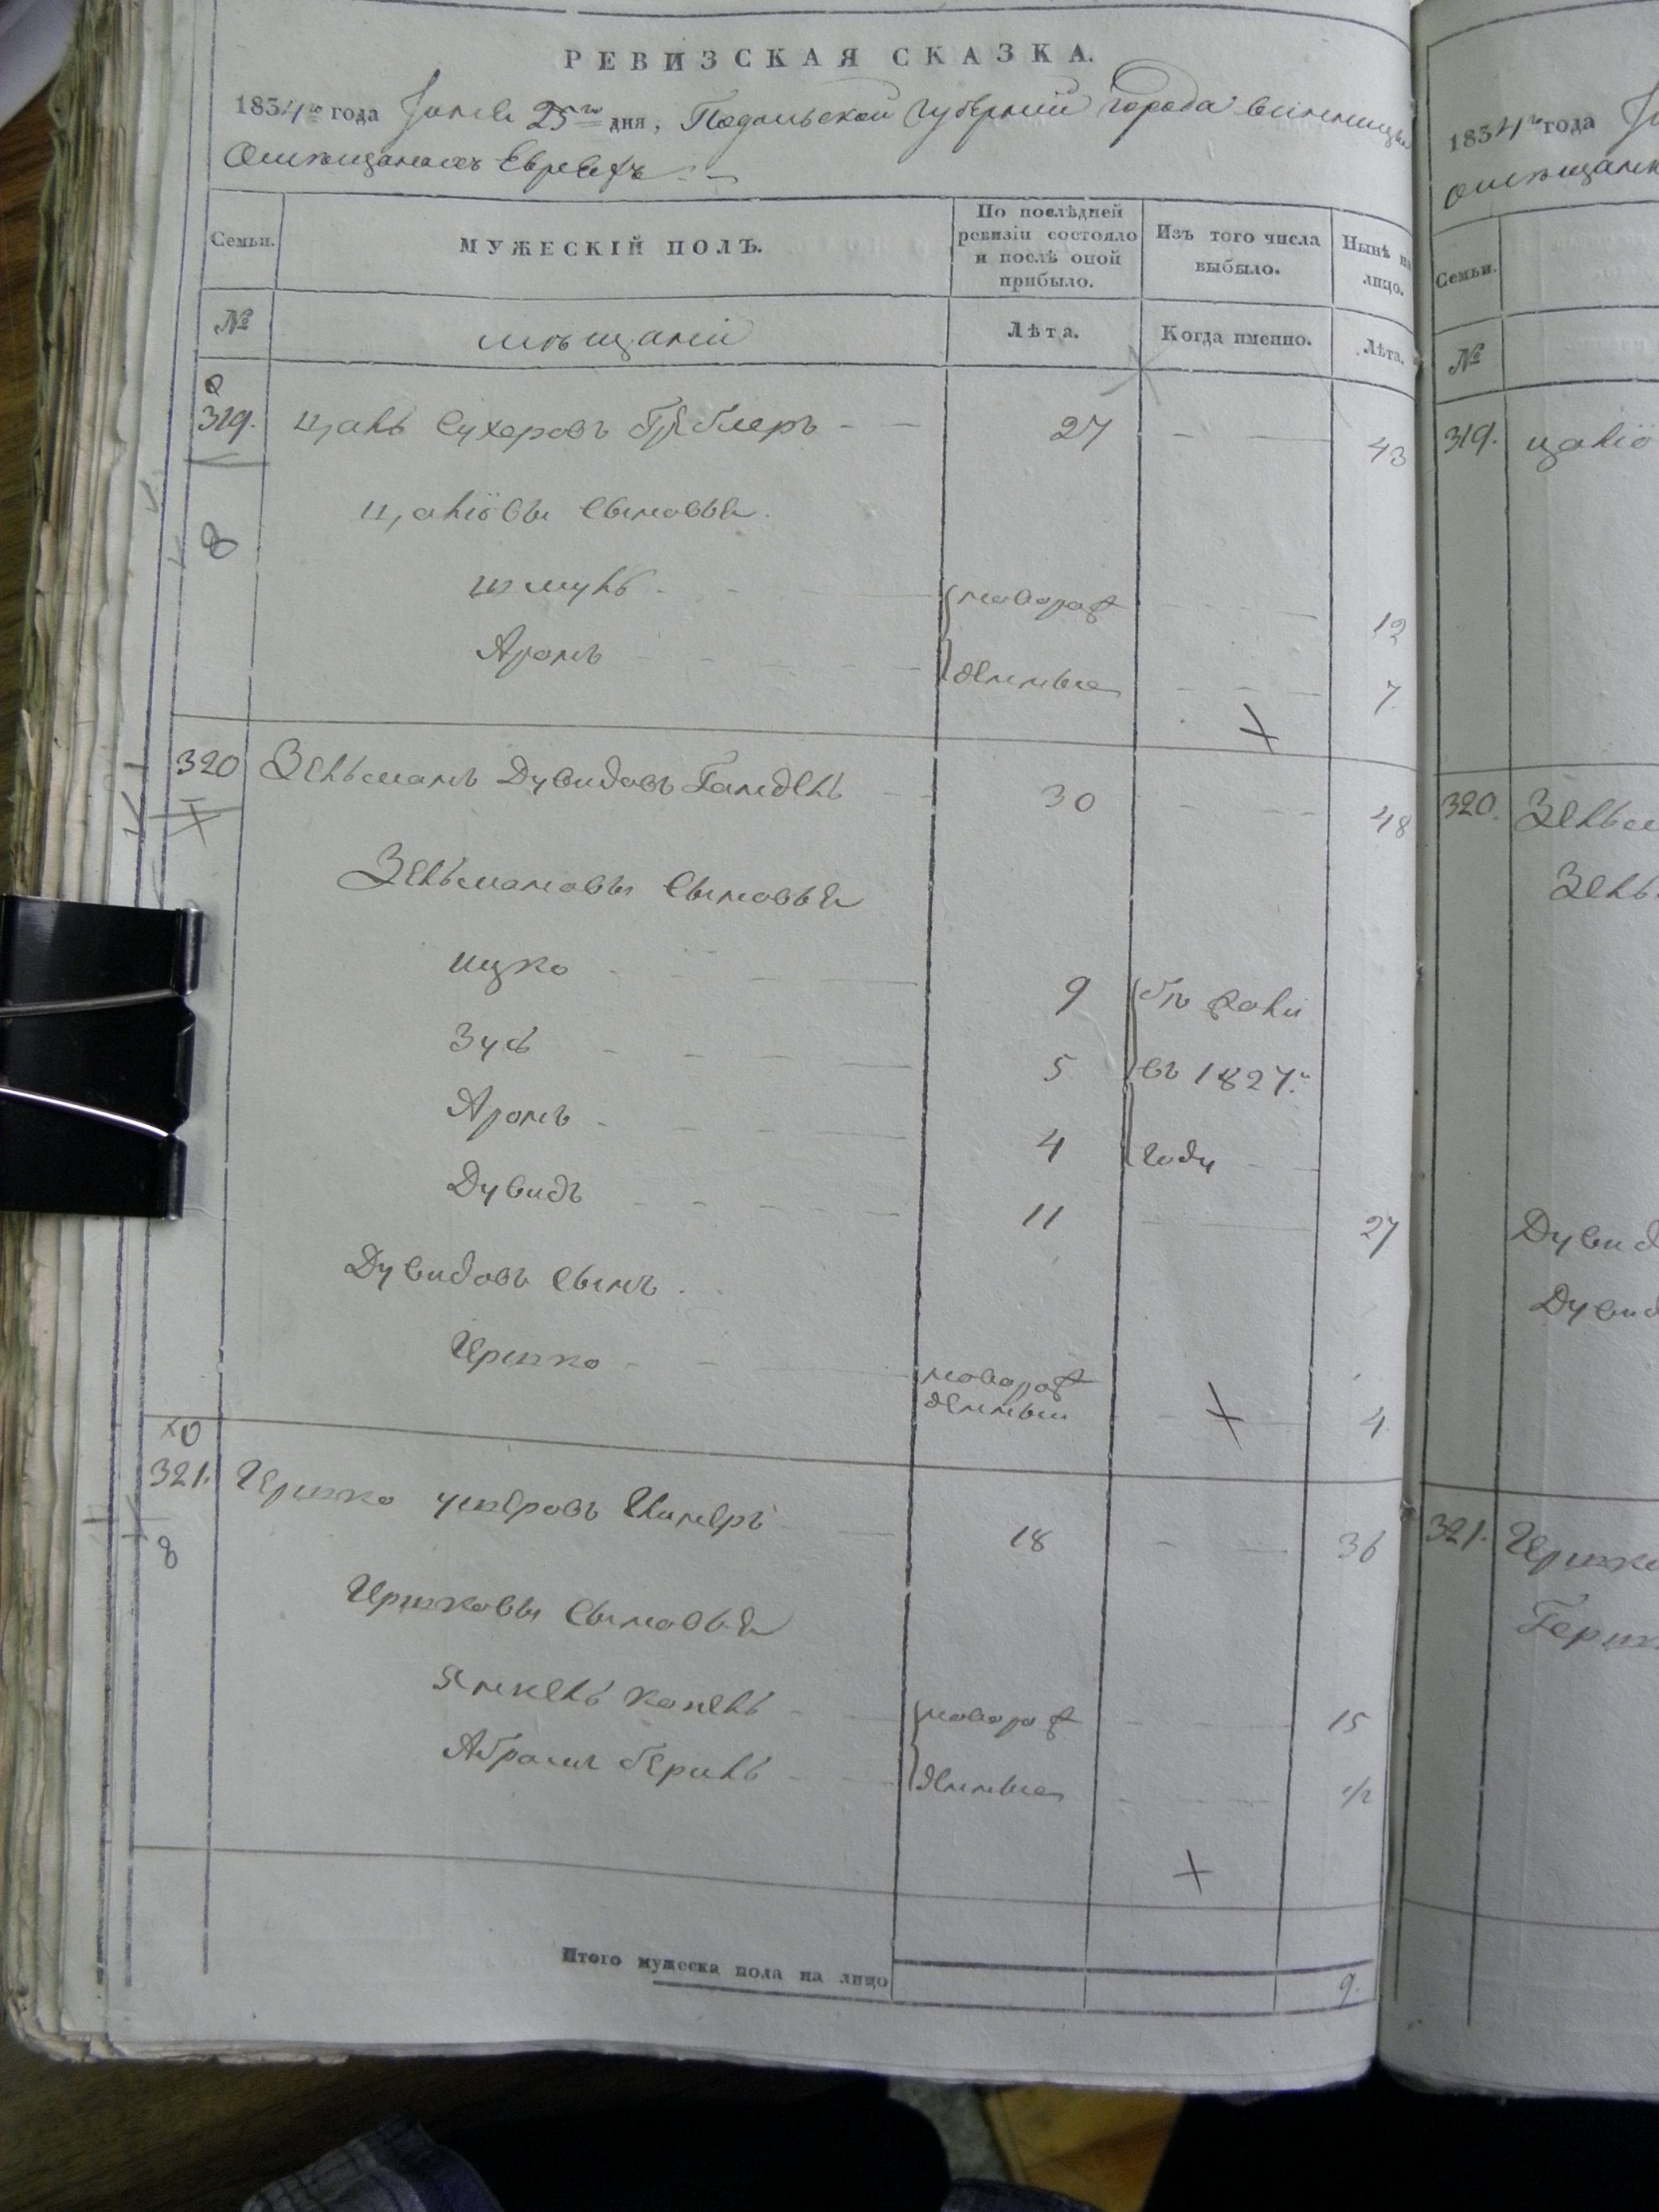 РЕВИЗСКАЯ СКАЗКА.
1834го года Іюня 25го дня, Подольской Губерніи города Винницы
О мѣщанахъ Евреяхъ
Семьи. МУЖЕСКІЙ ПОЛЪ. По послѣдней ревизіи состояло и послѣ оной прибыло. Изъ того числа выбыло. Нынѣ на лицо.
№ мѣщаніи Лѣта. Когда именно. Лѣта.
319. Цаль Сухеровъ 27 43
8 Цаліовы Сыновья
Шмуль новорож 12
Аронъ денные 7
320 Зельманъ Дувидовъ Гандель 30 48
Зельмановы Сыновья
Ицко 9
Зусь 5 въ 1827м
Аронъ 4 году
Дувидъ 11 27
Дувидовъ Сынъ
Ицько новорож денный 4
321. Гершко 18 36
8 Гершковы Сыновья
Янкель Копель новорож 15
Абрамъ Бериль денные 1/2
Итого мужеска пола на лицо 9.
1834го года
О мѣщан
Семьи.
№
319. Цаліо
320. Зельм
Зель
Дувид
Дувид
321. Гершко
Герш